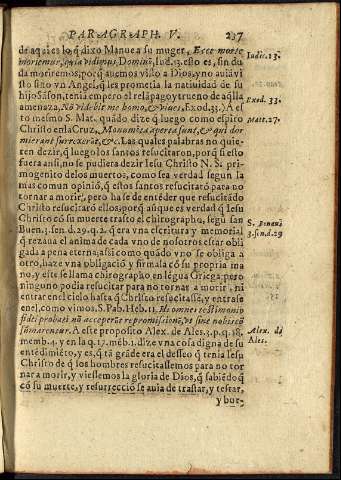 PARAGRAPH. V. 237
de aqui es lo q̃ dixo Manue a su muger, Exce morte
moriemur, quia vidimus Dominũ, Iud. 13. esto es, sin du
da moriremos, porq̃ auemos visto a Dios, y no auiã vi
sto sino vn Angel, q̃ les prometia la natiuidad de su
hijo Sãson, tenia empero el relãpago y trueno de aq̃lla
amenaza, Nõ videbit me homo, & viuet, Exod. 33. A el
to mesmo S. Mat. quãdo dize q̃ luego como espiro
Christo en la Cruz, Monumẽta aperta sunt, & qui dor
mierant surrexerũt, &c. Las quales palabras no quie-
ren dezir, q̃ luego los santos resucitaron, porq̃ si esto
fuera ansi, no se pudiera dezir Iesu Christo N. S. pri
mogenito de los muertos, como sea verdad segun la
mas comun opiniõ, q̃ estos santos resucitarõ para no
tornar a morir, pero ha se de entẽder que resucitãdo
Christo resucitarõ ellos, porq̃ ansi que es verdad q̃ Iesu
Christo cõ su muerte trasto el chirographo, segũ san
Buen. 3. sen. d. 29. q. 2. q̃ era vna escritura y memorial
q̃ rezaua el anima de cada vno de nosotros estar obli
gada a pena eterna; assi como quãdo vno se obliga a
otro, haze vna obligaciõ y firmala cõ su propria ma
no, y este se llama chirographo en lẽgua Griega: pero
ninguno podia resucitar para no tornar a morir, ni
entrar en el cielo hasta q̃ Christo resucitasse, y entrasse
en el, como vimos, S. Pab. Heb. 11. Hi omnes testimonio
fidei probati nõ acceperũt repromissionẽ, vt sine nobis cõ
sũmarentur. A este proposito Alex. de Ales. 3. p. q. 18.
memb. 4. y en la q. 17. mẽb. 1. dize vna cosa digna de su
entẽdimiẽto, y es, q̃ tã grãde era el desseo q̃ tenia Iesu
Christo de q̃ los hombres resucitassemos para no tor
nar a morir, y viessemos la gloria de Dios, q̃ sabiẽdo q̃
cõ su muerte, y resurrecciõ se auia de trastar, y restar,
y bor-
Iudic. 13.
Exod. 33.
Matt. 27.
S. Bonau
3. sen. d. 29
Alex. de
Ales.